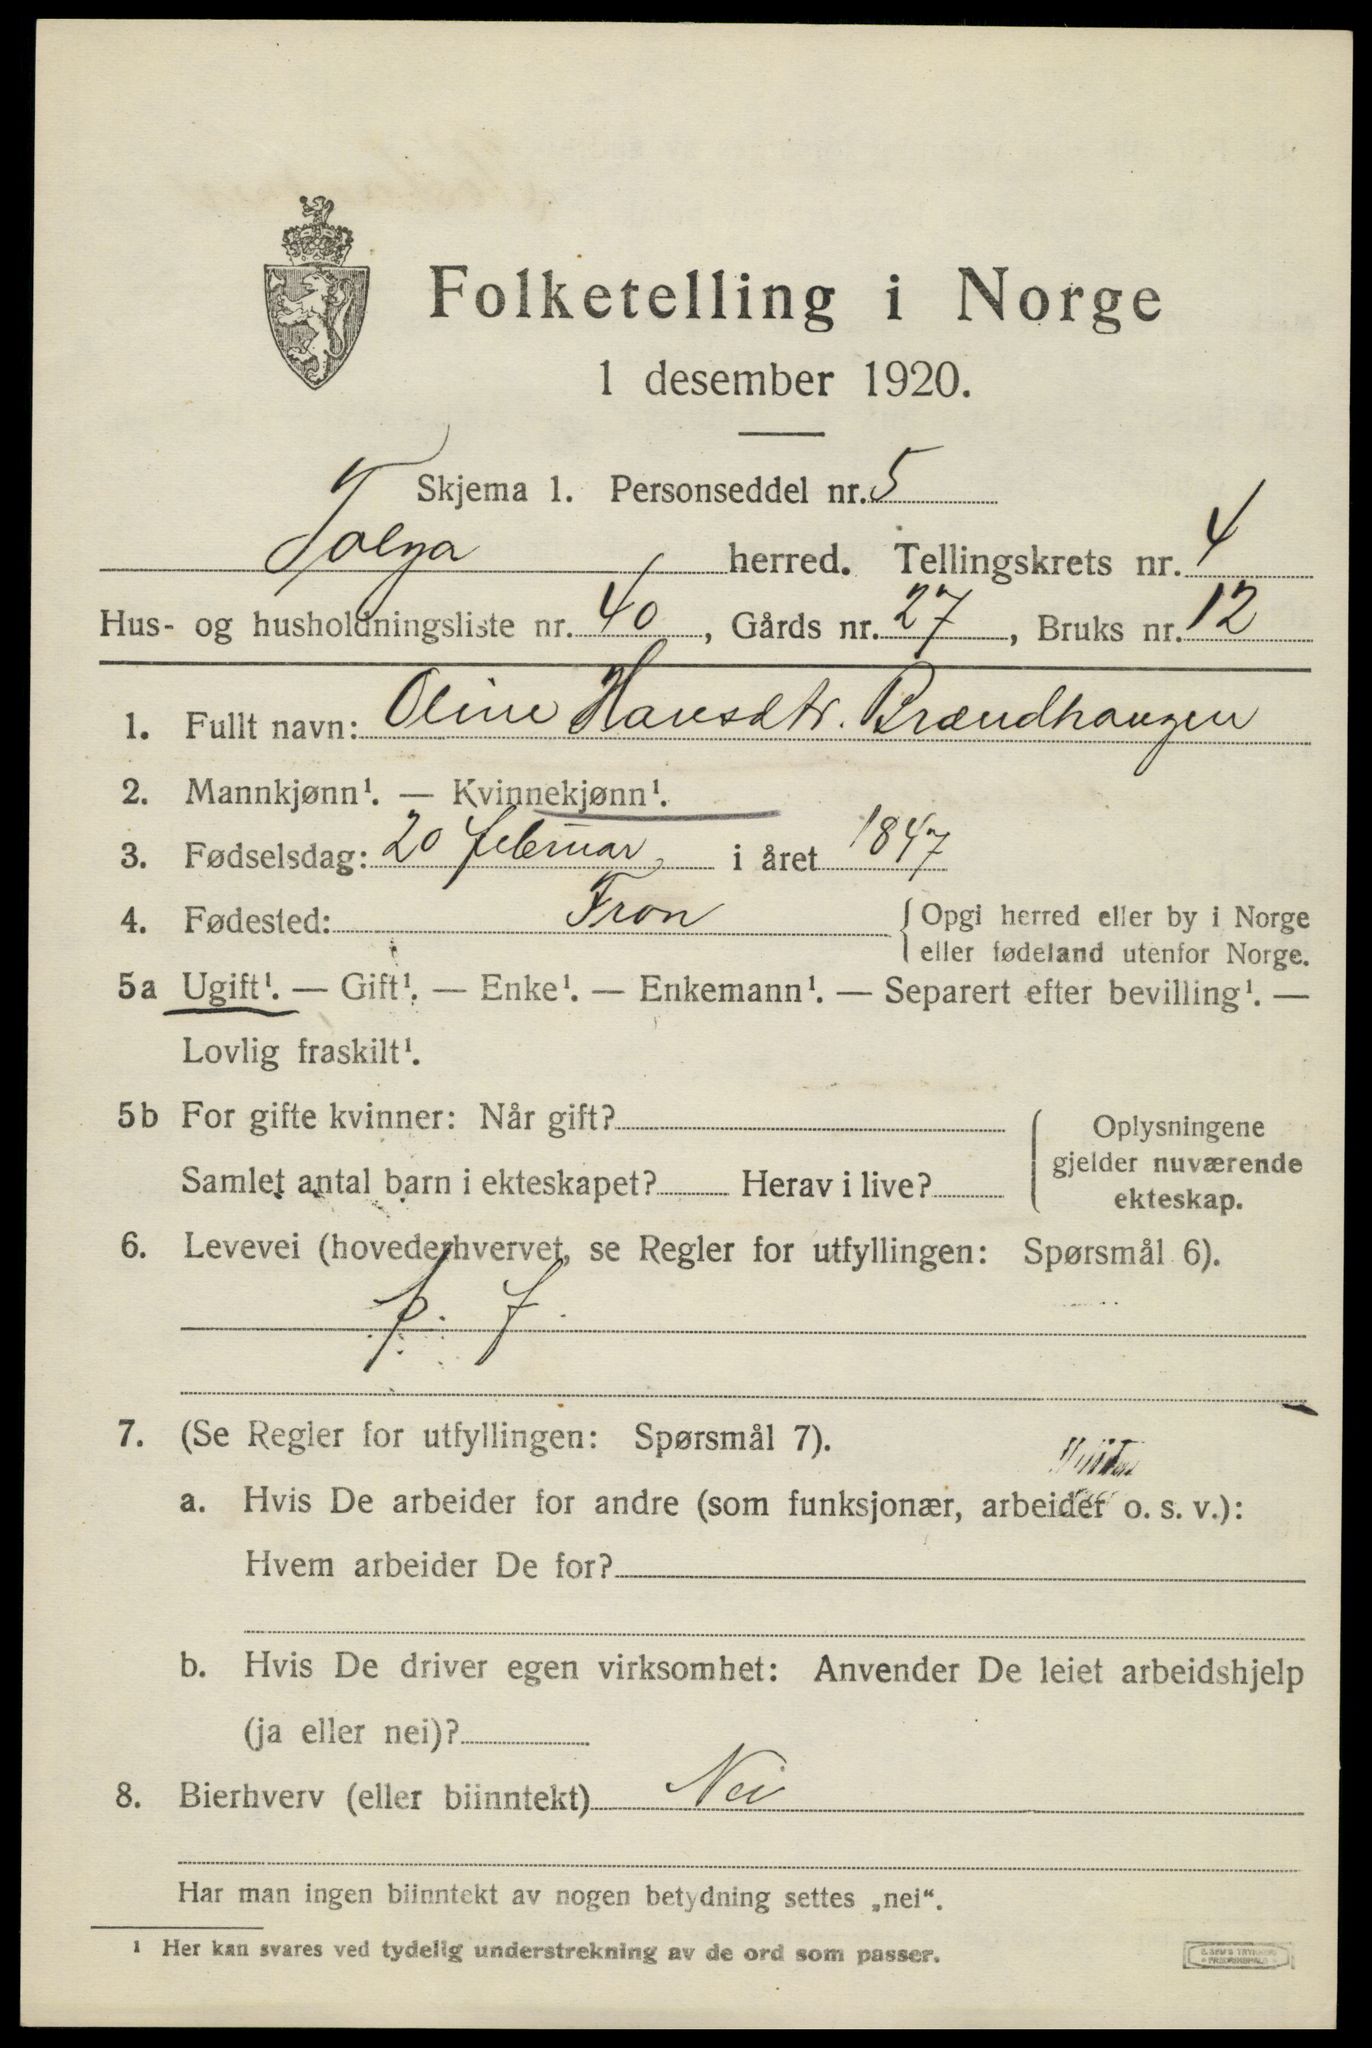 Folketelling i Norge
1 desember 1920.
Skjema 1. Personseddel nr. 5
Tolga herred. Tellingskrets nr. 4
Hus- og husholdningsliste nr. 40, Gårds nr. 27, Bruks nr. 12
1. Fullt navn: Oline Hansdtr. Brændhaugen
2. Mannkjønn¹. — Kvinnekjønn¹.
3. Fødselsdag: 20 februar, i året 1847
4. Fødested: Fron {Opgi herred eller by i Norge
eller fødeland utenfor Norge.
5a Ugift¹. — Gift¹. — Enke¹. — Enkemann¹. — Separert efter bevilling¹. —
Lovlig fraskilt¹.
5b For gifte kvinner: Når gift?
Samlet antal barn i ekteskapet? Herav i live?
Oplysningene
gjelder nuværende
ekteskap.
6. Levevei (hovederhvervet, se Regler for utfyllingen: Spørsmål 6).
p. f.
7. (Se Regler for utfyllingen: Spørsmål 7).
a. Hvis De arbeider for andre (som funksjonær, arbeider o. s. v.):
Hvem arbeider De for?
b. Hvis De driver egen virksomhet: Anvender De leiet arbeidshjelp
(ja eller nei)?
8. Bierhverv (eller biinntekt) Nei
Har man ingen biinntekt av nogen betydning settes „nei“.
¹ Her kan svares ved tydelig understrekning av de ord som passer.